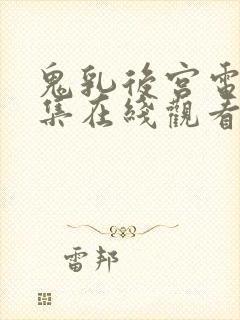 鬼乳後宮雷
集在綫觀看
雷邦